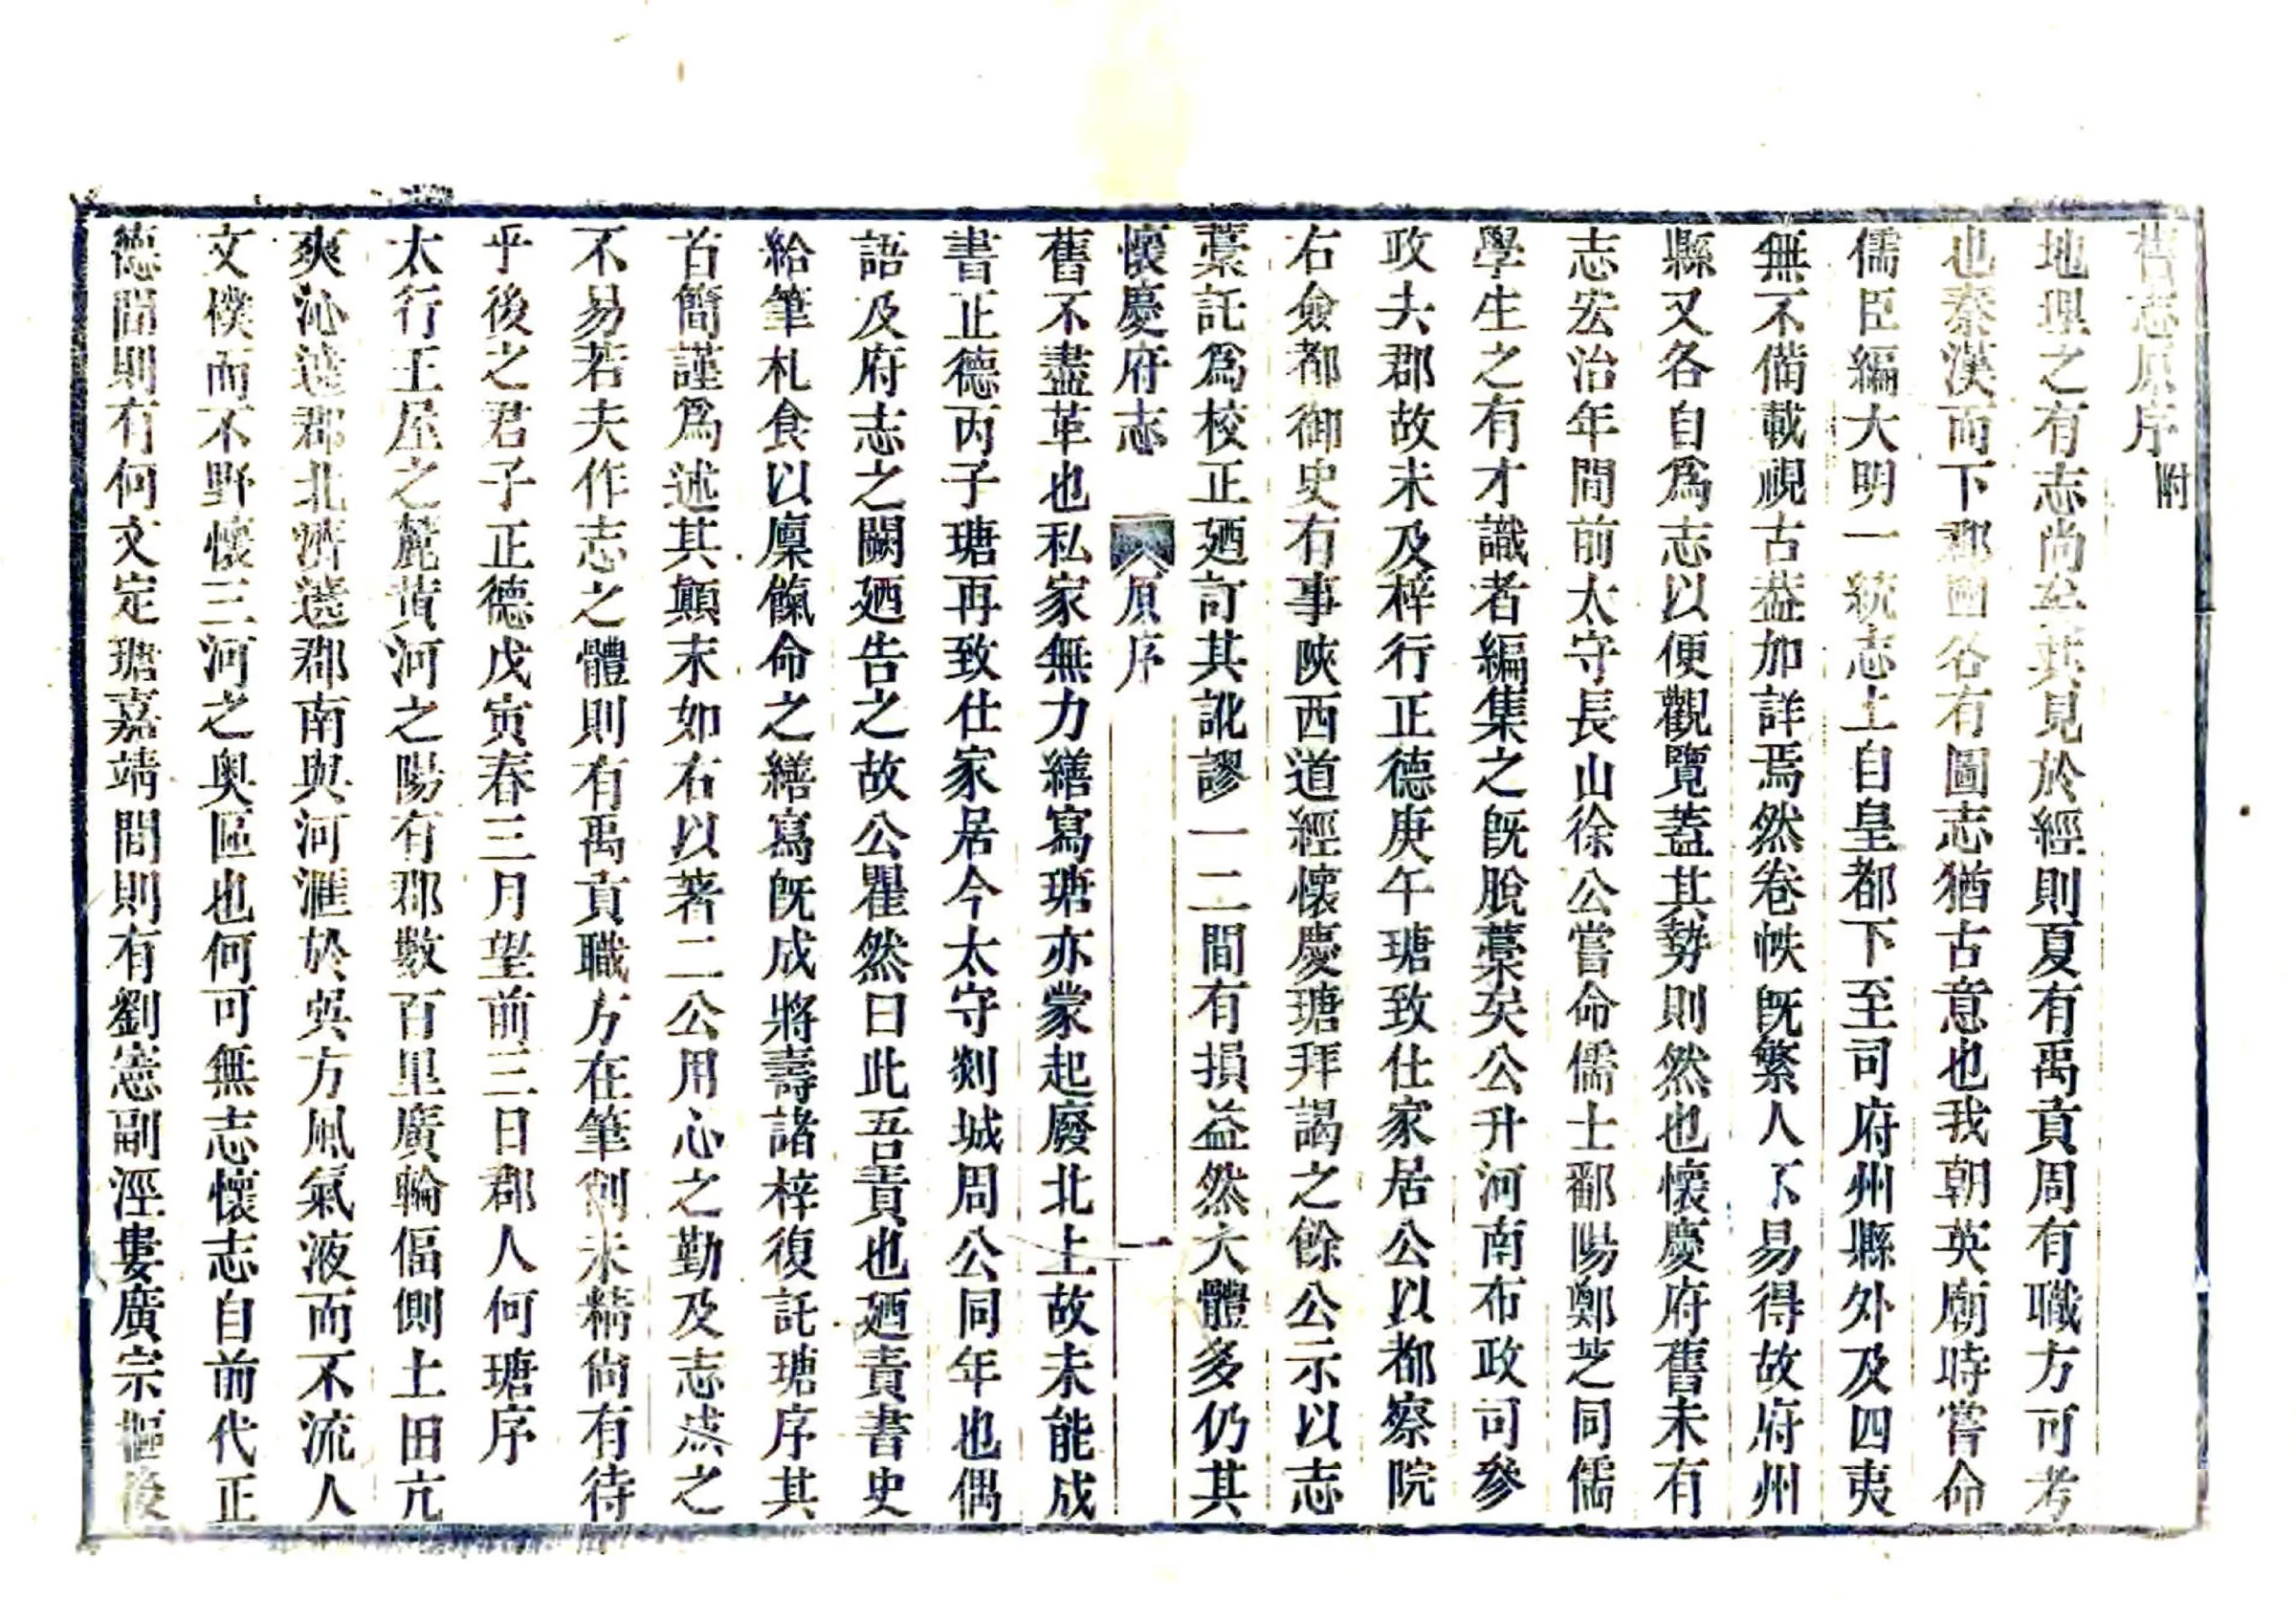 舊志原序附
地理之有志尚矣其見於經則夏有禹貢周有職方可考
也秦漢而下郡國各有圖志猶古意也我朝英廟時嘗命
儒臣編大明一統志上自皇都下至司府州縣外及四夷
無不備載視古益加詳焉然卷帙既繁人不易得故府州
縣又各自爲志以便觀覽蓋其勢則然也懷慶府舊未有
志宏治年間前太守長山徐公嘗命儒士鄱陽鄭芝同儒
學生之有才識者編集之既脫藁矣公升河南布政司參
政去郡故未及梓行正德庚午瑭致仕家居公以都察院
右僉都御史有事陝西道經懷慶瑭拜謁之餘公示以志
藁託爲校正廼訂其訛謬一二間有損益然大體多仍其
懷慶府志 原序 一
舊不盡革也私家無力繕寫瑭亦蒙起廢北上故未能成
書正德丙子瑭再致仕家居今太守剡城周公同年也偶
語及府志之闕廼告之故公瞿然曰此吾責也廼責書史
給筆札食以廩餼命之繕寫既成將壽諸梓復託瑭序其
首簡謹爲述其顛末如右以著二公用心之勤及志成之
不易若夫作志之體則有禹貢職方在筆削未精尚有待
乎後之君子正德戊寅春三月望前三日郡人何瑭序
太行王屋之麓黃河之陽有郡數百里廣輪偪側土田亢
爽沁遶郡北濟遶郡南與河滙於吳方風氣液而不流人
文樸而不野懷三河之奥區也何可無志懷志自前代正
德間則有何文定瑭嘉靖間則有劉憲副涇婁廣宗樞後